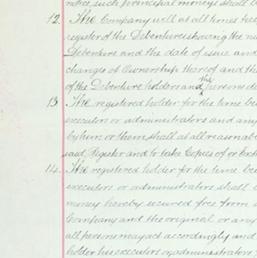 notice, such principal moneys shall be
12. The Company will at all times keep
register of the Debentures showing the n
Debenture and the date of issue and
changes of Ownership thereof and th
of the Debenture holders and the persons d
13 The registered holder for the time be
executors or administrators and any
by him or them shall at all reasonabl
said Register and to take Copies of or Ext
14. The registered holder for the time be
executors or administrators shall b
money hereby secured free from
Company and the original or any
all persons may act accordingly and
holder his executors or administrators